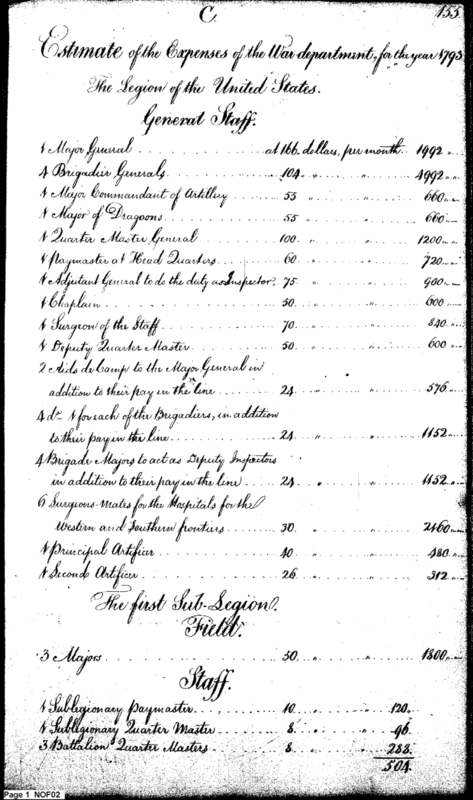 C.
155
Estimate of the Expenses of the War department, for the year 1793
The Legion of the United States.
General Staff.
1 Major General at 166 dollars, per month 1992
4 Brigadier Generals 104 " " 4992
1 Major Commandant of Artillery 55 " " 660
1 Major of Dragoons 55 " " 660
1 Quarter Master General 100 " " 1200
1 paymaster at Head Quarters 60 " " 720
1 Adjutant General to do the duty as Inspector 75 " " 900
1 Chaplain 50 " " 600
1 Surgeon of the Staff 70 " " 840
1 Deputy Quarter Master 50 " " 600
2 Aids de Camp to the Major General in
addition to their pay in the line 24 " " 576
4 do 1 for each of the Brigadiers, in addition
to their pay in the line 24 " " 1152
4 Brigade Majors to act as Deputy Inspectors
in addition to their pay in the line 24 " " 1152
6 Surgeons mates for the Hospitals for the
Western and Southern frontiers 30 " " 2160
1 Principal Artificer 40 " " 480
1 Second Artificer 26 " " 312
The first Sub-Legion.
Field.
3 Majors 50 " " 1800
Staff.
1 Sublegionary Paymaster 10 " " 120
1 Sublegionary Quarter Master 8 " " 96
3 Battalion Quarter Masters 8 " " 288
504
Page 1 NOF02